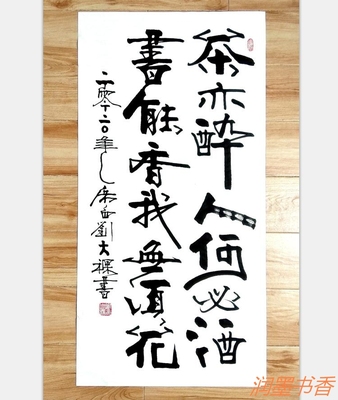 茶亦醉人何必酒
書能香我無須花
二零二〇年劉大書
润墨书香